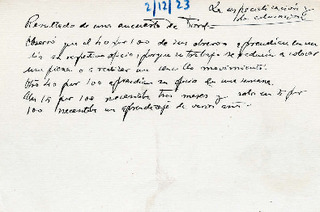 2/12/23
La especialización y
la educación
Resultado de una encuesta de Ford
Observó que el 40 por 100 de sus obreros aprendían en un
día su respectivo oficio, porque su trabajo se reducía a colocar
una pieza o a realizar un sencillo movimiento.
Otro 40 por 100 aprendía su oficio en una semana.
Un 15 por 100 necesitaba tres meses y solo un 5 por
100 necesitaba un aprendizaje de varios años.